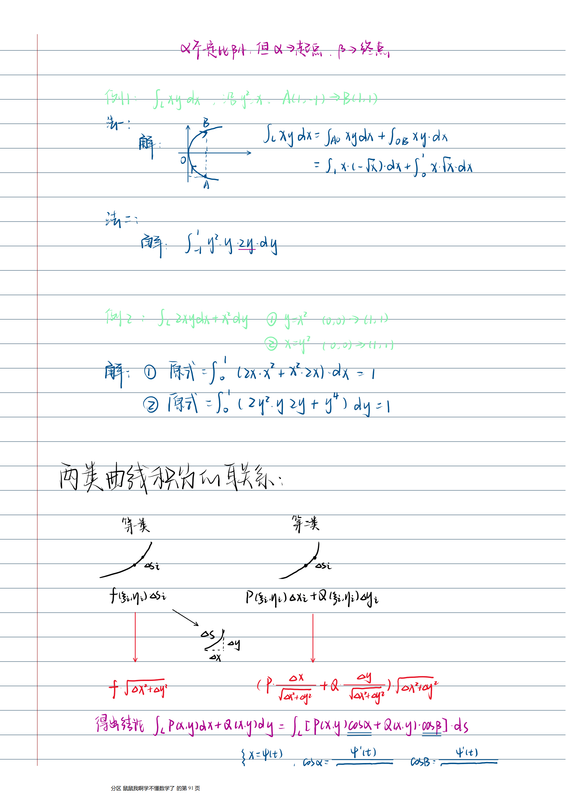 α不是比β小, 但α→起点, β→终点
例1: ∫L xy dx, 沿y²=x, A(1,-1)→B(1,1)
法一:
解:
B
O
A
∫L xy dx = ∫AO xy dx + ∫OB xy·dx
= ∫₁⁰ x·(-√x)·dx + ∫₀¹ x·√x·dx
法二:
解: ∫₋₁¹ y²·y·2y·dy
例2: ∫L 2xy dx + x² dy ① y=x² (0,0)→(1,1)
② x=y² (0,0)→(1,1)
解: ① 原式 = ∫₀¹ (2x·x² + x²·2x)·dx = 1
② 原式 = ∫₀¹ (2y²·y·2y + y⁴) dy = 1
两类曲线积分的联系:
第一类 第二类
Δsi Δsi
f(ξi,ηi)Δsi P(ξi,ηi)Δxi + Q(ξi,ηi)Δyi
Δs
Δy
Δx
f √Δx²+Δy² (P· Δx/√Δx²+Δy² + Q· Δy/√Δx²+Δy²) √Δx²+Δy²
得出结论 ∫L P(x,y)dx + Q(x,y)dy = ∫L [P(x,y)cosα + Q(x,y)·cosβ]·ds
{ x=φ(t), cosα= φ'(t) cosβ= ψ'(t)
分区 鼠鼠我啊学不懂数学了 的第 91 页